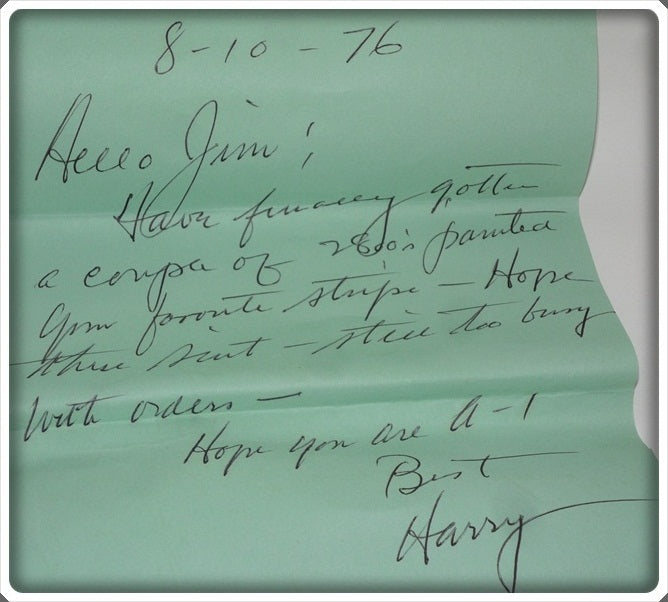 8-10-76
Hello Jim!
Have finally gotten
a couple of 2800's painted
your favorite stripe - Hope
these suit - still too busy
with orders -
Hope you are A-1
Best
Harry